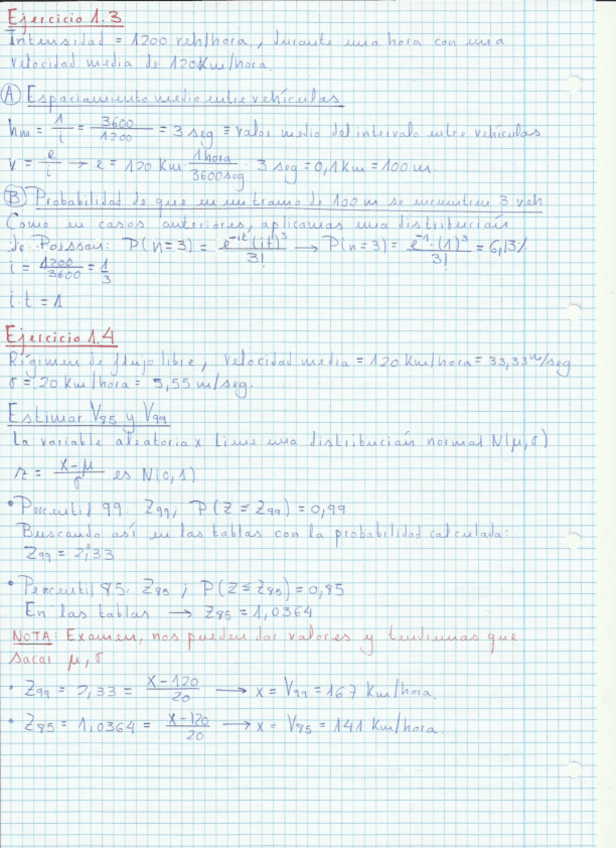 Ejercicio 1.3
Intensidad = 1200 veh/hora, durante una hora con una
velocidad media de 120 Km/hora.
Ⓐ Espaciamiento medio entre vehículos
hm = 1/i = 3600/1200 = 3 seg = valor medio del intervalo entre vehículos
v = e/i → e = 120 Km · 1 hora/3600 seg · 3 seg = 0,1 Km = 100 m.
Ⓑ Probabilidad de que en un tramo de 100 m se encuentren 3 veh
Como en casos anteriores, aplicamos una distribución
de Poisson: P(n=3) = e^-it (it)^3/3! → P(n=3) = e^-1 · (1)^3/3! = 6,13%
i = 1200/3600 = 1/3
i·t = 1
Ejercicio 1.4
Régimen de flujo libre, velocidad media = 120 Km/hora = 33,33 m/seg
σ = 20 Km/hora = 5,55 m/seg.
Estimar V85 y V99
La variable aleatoria x tiene una distribución normal N(μ,σ)
z = x-μ/σ es N(0,1)
• Percentil 99. Z99, P(Z≤Z99) = 0,99
Buscando así en las tablas con la probabilidad calculada:
Z99 = 2,33
• Percentil 85: Z85 ; P(Z≤Z85) = 0,85
En las tablas → Z85 = 1,0364
NOTA: Examen, nos pueden dar valores y tendremos que
sacar μ, σ
• Z99 = 2,33 = x-120/20 → x = V99 = 167 Km/hora.
• Z85 = 1,0364 = x-120/20 → x = V85 = 141 Km/hora.